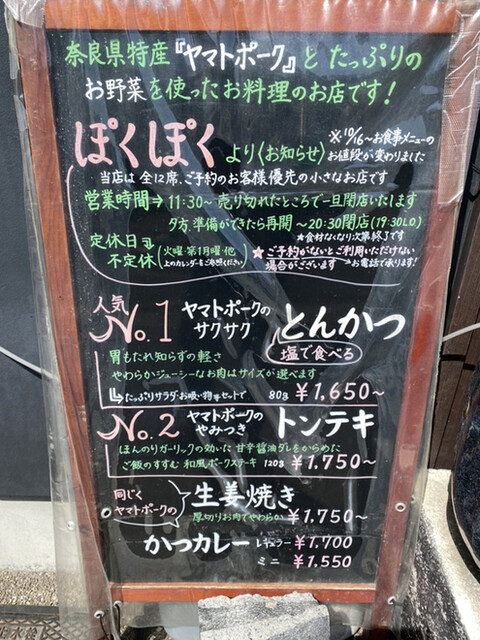 奈良県特産『ヤマトポーク』と たっぷりの
お野菜を使ったお料理のお店です!
ぽくぽくより〈お知らせ〉
※10/16~お食事メニューの
お値段が変わりました
当店は全12席、ご予約のお客様優先の小さなお店です
営業時間⇒11:30~売り切れたところで一旦閉店いたします
夕方、準備ができたら再開~20:30閉店(19:30L.O)
★食材なくなり次第終了です
定休日
不定休
(火曜・第1月曜 他
上のカレンダーをご参照ください)
★ご予約がないとご利用いただけない
場合がございます→お電話で承ります!
人気
No.1 ヤマトポークの
サクサク とんかつ
塩で食べる
胃もたれ知らずの軽さ
やわらかジューシーなお肉はサイズが選べます
たっぷりサラダ・お吸い物等セットで 80g ¥1,650~
No.2 ヤマトポークの
やみつき トンテキ
ほんのりガーリックの効いた 甘辛醤油ダレをからめた
ご飯のすすむ 和風ポークステーキ 120g ¥1,750~
同じく
ヤマトポークの
生姜焼き
厚切りお肉でやわらか ¥1,750~
かつカレー レギュラー ¥1,700
ミニ ¥1,550